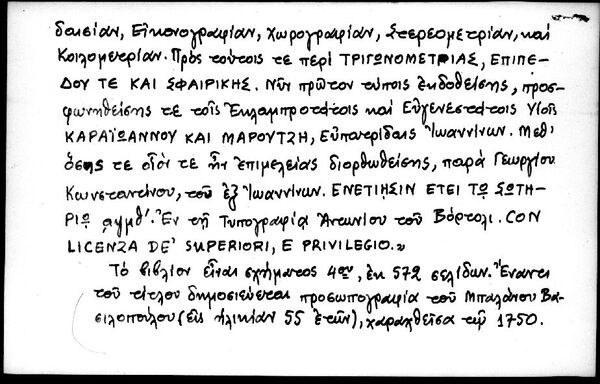 δαισίαν, Εἰκονογραφίαν, Χωρογραφίαν, Στερεομετρίαν, καὶ
Κοιλομετρίαν. Πρὸς τούτοις τε περὶ ΤΡΙΓΩΝΟΜΕΤΡΙΑΣ, ΕΠΙΠΕ-
ΔΟΥ ΤΕ ΚΑΙ ΣΦΑΙΡΙΚΗΣ. Νῦν πρῶτον τύποις ἐκδοθείσης, προσ-
φωνηθείσης τε τοῖς Ἐκλαμπροτάτοις καὶ Εὐγενεστάτοις Υἱοῖς
ΚΑΡΑΪΩΑΝΝΟΥ ΚΑΙ ΜΑΡΟΥΤΖΗ, Εὐπατρίδαις Ἰωαννίνων. Μεθ'
ὅσης τε οἷόν τε ἦν ἐπιμελείας διορθωθείσης, παρὰ Γεωργίου
Κωνσταντίνου, τοῦ ἐξ Ἰωαννίνων. ΕΝΕΤΙΗΣΙΝ ΕΤΕΙ ΤΩ ΣΩΤΗ-
ΡΙΩ αψμθ'. Ἐν τῇ Τυπογραφίᾳ Ἀντωνίου τοῦ Βόρτολι. CON
LICENZA DE' SUPERIORI, E PRIVILEGIO.»
Τὸ βιβλίον εἶναι σχήματος 4ου, ἐκ 572 σελίδων. Ἔναντι
τοῦ τίτλου δημοσιεύεται προσωπογραφία τοῦ Μπαλάνου Βα-
σιλοπούλου (εἰς ἡλικίαν 55 ἐτῶν), χαραχθεῖσα τῷ 1750.